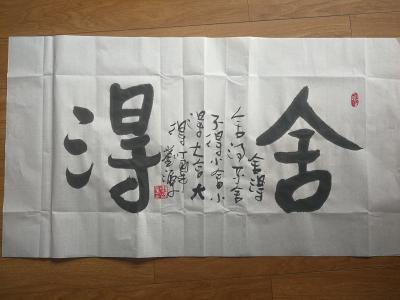 舍得
舍得
舍得不舍
不得小舍小
得大舍大
得丁酉年